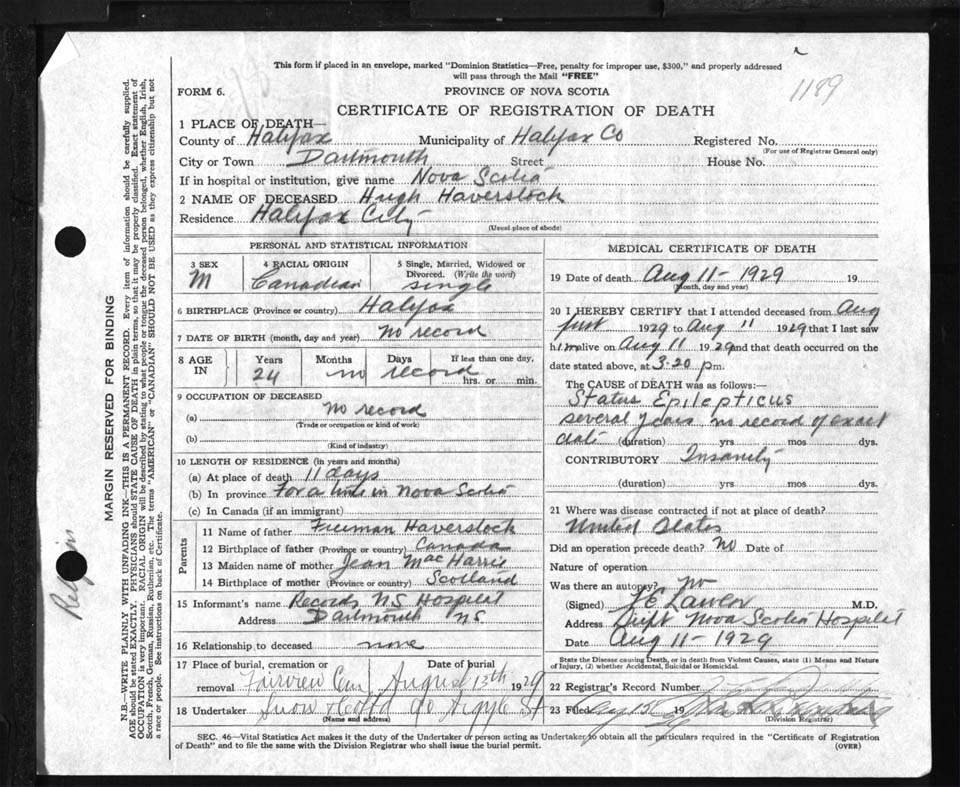 1189
This form if placed in an envelope, marked "Dominion Statistics—Free, penalty for improper use, $300," and properly addressed
will pass through the Mail "FREE"
FORM 6.
PROVINCE OF NOVA SCOTIA
CERTIFICATE OF REGISTRATION OF DEATH
1 PLACE OF DEATH—
County of Halifax Municipality of Halifax Co Registered No.
(For use of Registrar General only)
City or Town Dartmouth Street House No.
If in hospital or institution, give name Nova Scotia
2 NAME OF DECEASED Hugh Haverstock
Residence Halifax City
(Usual place of abode)
PERSONAL AND STATISTICAL INFORMATION
3 SEX
M
4 RACIAL ORIGIN
Canadian
5 Single, Married, Widowed or
Divorced. (Write the word)
single
6 BIRTHPLACE (Province or country) Halifax
7 DATE OF BIRTH (month, day and year) no record
8 AGE IN
Years Months Days If less than one day,
24 no record hrs. or min.
9 OCCUPATION OF DECEASED
(a) no record
(Trade or occupation or kind of work)
(b)
(Kind of industry)
10 LENGTH OF RESIDENCE (in years and months)
(a) At place of death 11 days
(b) In province For a time in Nova Scotia
(c) In Canada (if an immigrant)
Parents
11 Name of father Freeman Haverstock
12 Birthplace of father (Province or country) Canada
13 Maiden name of mother Jean Mac Harris
14 Birthplace of mother (Province or country) Scotland
15 Informant's name Records NS Hospital
Address Dartmouth NS
16 Relationship to deceased none
17 Place of burial, cremation or Date of burial
removal Fairview Cem August 13th 1929
18 Undertaker Snow & Co Ltd 90 Argyle St
(Name and address)
MEDICAL CERTIFICATE OF DEATH
19 Date of death Aug 11 - 1929 19
(Month, day and year)
20 I HEREBY CERTIFY that I attended deceased from Aug
first 1929 to Aug 11 1929 that I last saw
him alive on Aug 11 1929 and that death occurred on the
date stated above, at 3.20 p m.
The CAUSE of DEATH was as follows:—
Status Epilepticus
several years no record of exact
date (duration) yrs mos dys.
CONTRIBUTORY Insanity
(duration) yrs mos dys.
21 Where was disease contracted if not at place of death?
United States
Did an operation precede death? no Date of
Nature of operation
Was there an autopsy? no
(Signed) Lawlor M.D.
Address Supt Nova Scotia Hospital
Date Aug 11 - 1929
State the Disease causing Death, or in death from Violent Causes, state (1) Means and Nature
of Injury, (2) whether Accidental, Suicidal or Homicidal.
22 Registrar's Record Number
23 Filed Aug 15 19
(Division Registrar)
SEC. 46—Vital Statistics Act makes it the duty of the Undertaker or person acting as Undertaker to obtain all the particulars required in the "Certificate of Registration
of Death" and to file the same with the Division Registrar who shall issue the burial permit.
(OVER)
MARGIN RESERVED FOR BINDING
N.B.—WRITE PLAINLY WITH UNFADING INK—THIS IS A PERMANENT RECORD. Every item of information should be carefully supplied.
AGE should be stated EXACTLY. PHYSICIANS should STATE CAUSE OF DEATH in plain terms, so that it may be properly classified. Exact statement of
OCCUPATION is very important. RACIAL ORIGIN will be described by stating to what people or tongue the deceased person belonged, whether English, Irish,
Scotch, French, German, Russian, Ruthenian, etc. The terms "AMERICAN" or "CANADIAN" SHOULD NOT BE USED as they express citizenship but not
a race or people. See instructions on back of Certificate.